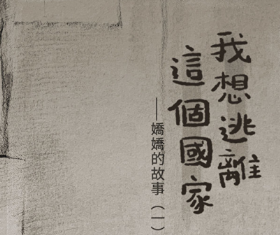 我想逃離
這個國家
——嬌嬌的故事（一）